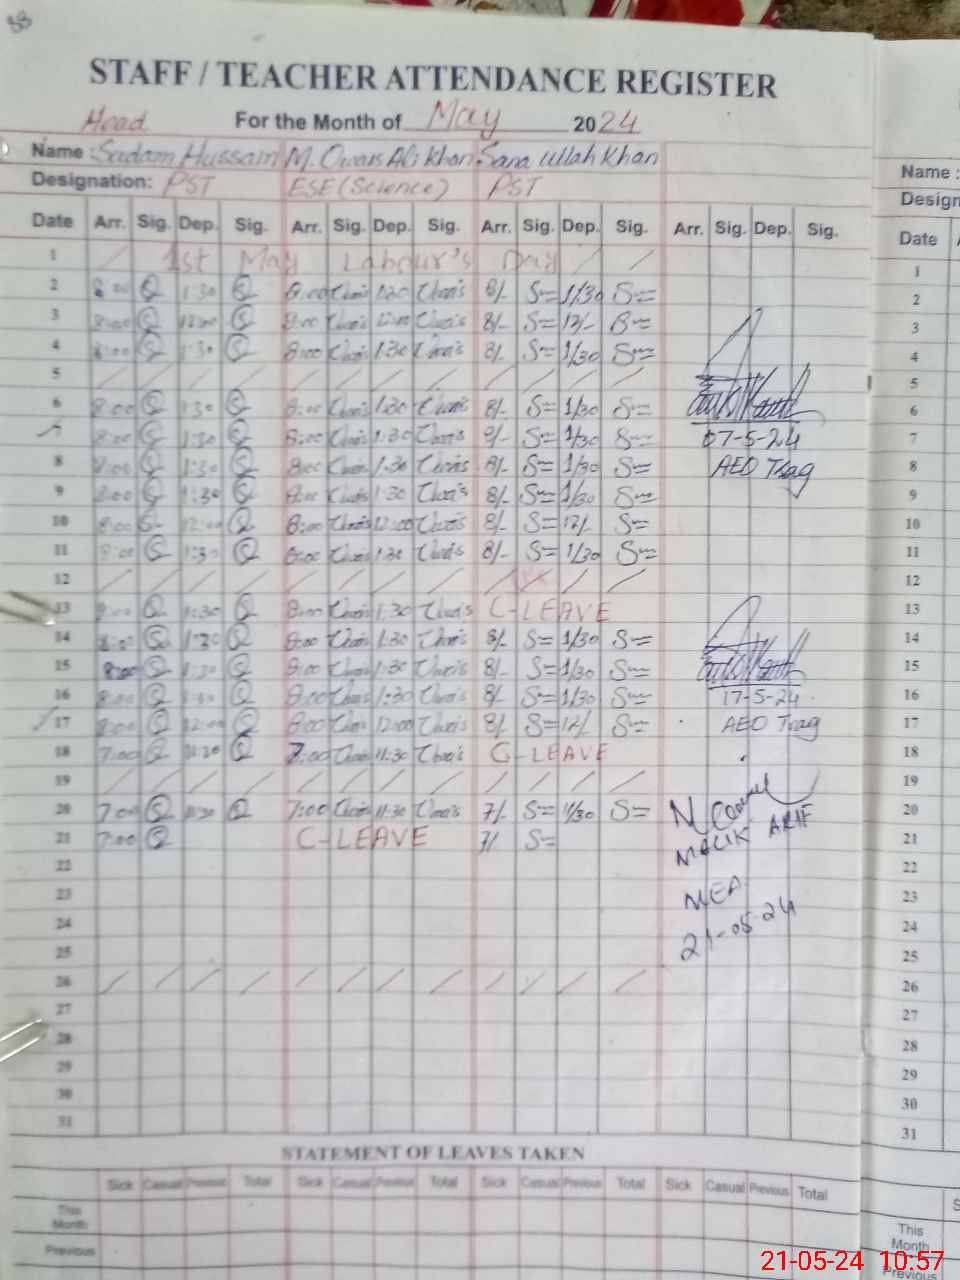 38
STAFF / TEACHER ATTENDANCE REGISTER
Head For the Month of May 2024
Name : Sadam Hussain M. Owais Ali Khan Sana Ullah Khan
Designation: PST ESE (Science) PST
Date Arr. Sig. Dep. Sig. Arr. Sig. Dep. Sig. Arr. Sig. Dep. Sig. Arr. Sig. Dep. Sig.
1 1st May Labour's Day
2 8:00 1:30 8:00 1:30 8/- 1/30
3 8:00 12:00 8:00 12:00 8/- 12/-
4 8:00 1:30 8:00 1:30 8/- 1/30
5
6 8:00 1:30 8:00 1:30 8/- 1/30
7 8:00 1:30 8:00 1:30 8/- 1/30 07-5-24
8 8:00 1:30 8:00 1:30 8/- 1/30 AEO Trag
9 8:00 1:30 8:00 1:30 8/- 1/30
10 8:00 12:00 8:00 12:00 8/- 12/-
11 8:00 1:30 8:00 1:30 8/- 1/30
12
13 8:00 1:30 8:00 1:30 C-LEAVE
14 8:00 1:30 8:00 1:30 8/- 1/30
15 8:00 1:30 8:00 1:30 8/- 1/30
16 8:00 1:30 8:00 1:30 8/- 1/30 17-5-24
17 8:00 12:00 8:00 12:00 8/- 12/- AEO Trag
18 7:00 11:30 7:00 11:30 C-LEAVE
19
20 7:00 11:30 7:00 11:30 7/- 11/30
21 7:00 C-LEAVE 7/ MALIK ARIF
22
23 MEA
24 21-05-24
25
26
27
28
29
30
31
STATEMENT OF LEAVES TAKEN
Sick Casual Previous Total Sick Casual Previous Total Sick Casual Previous Total Sick Casual Previous Total
This Month
Previous
Name :
Design
Date
1
2
3
4
5
6
7
8
9
10
11
12
13
14
15
16
17
18
19
20
21
22
23
24
25
26
27
28
29
30
31
This Month
Previous
21-05-24 10:57